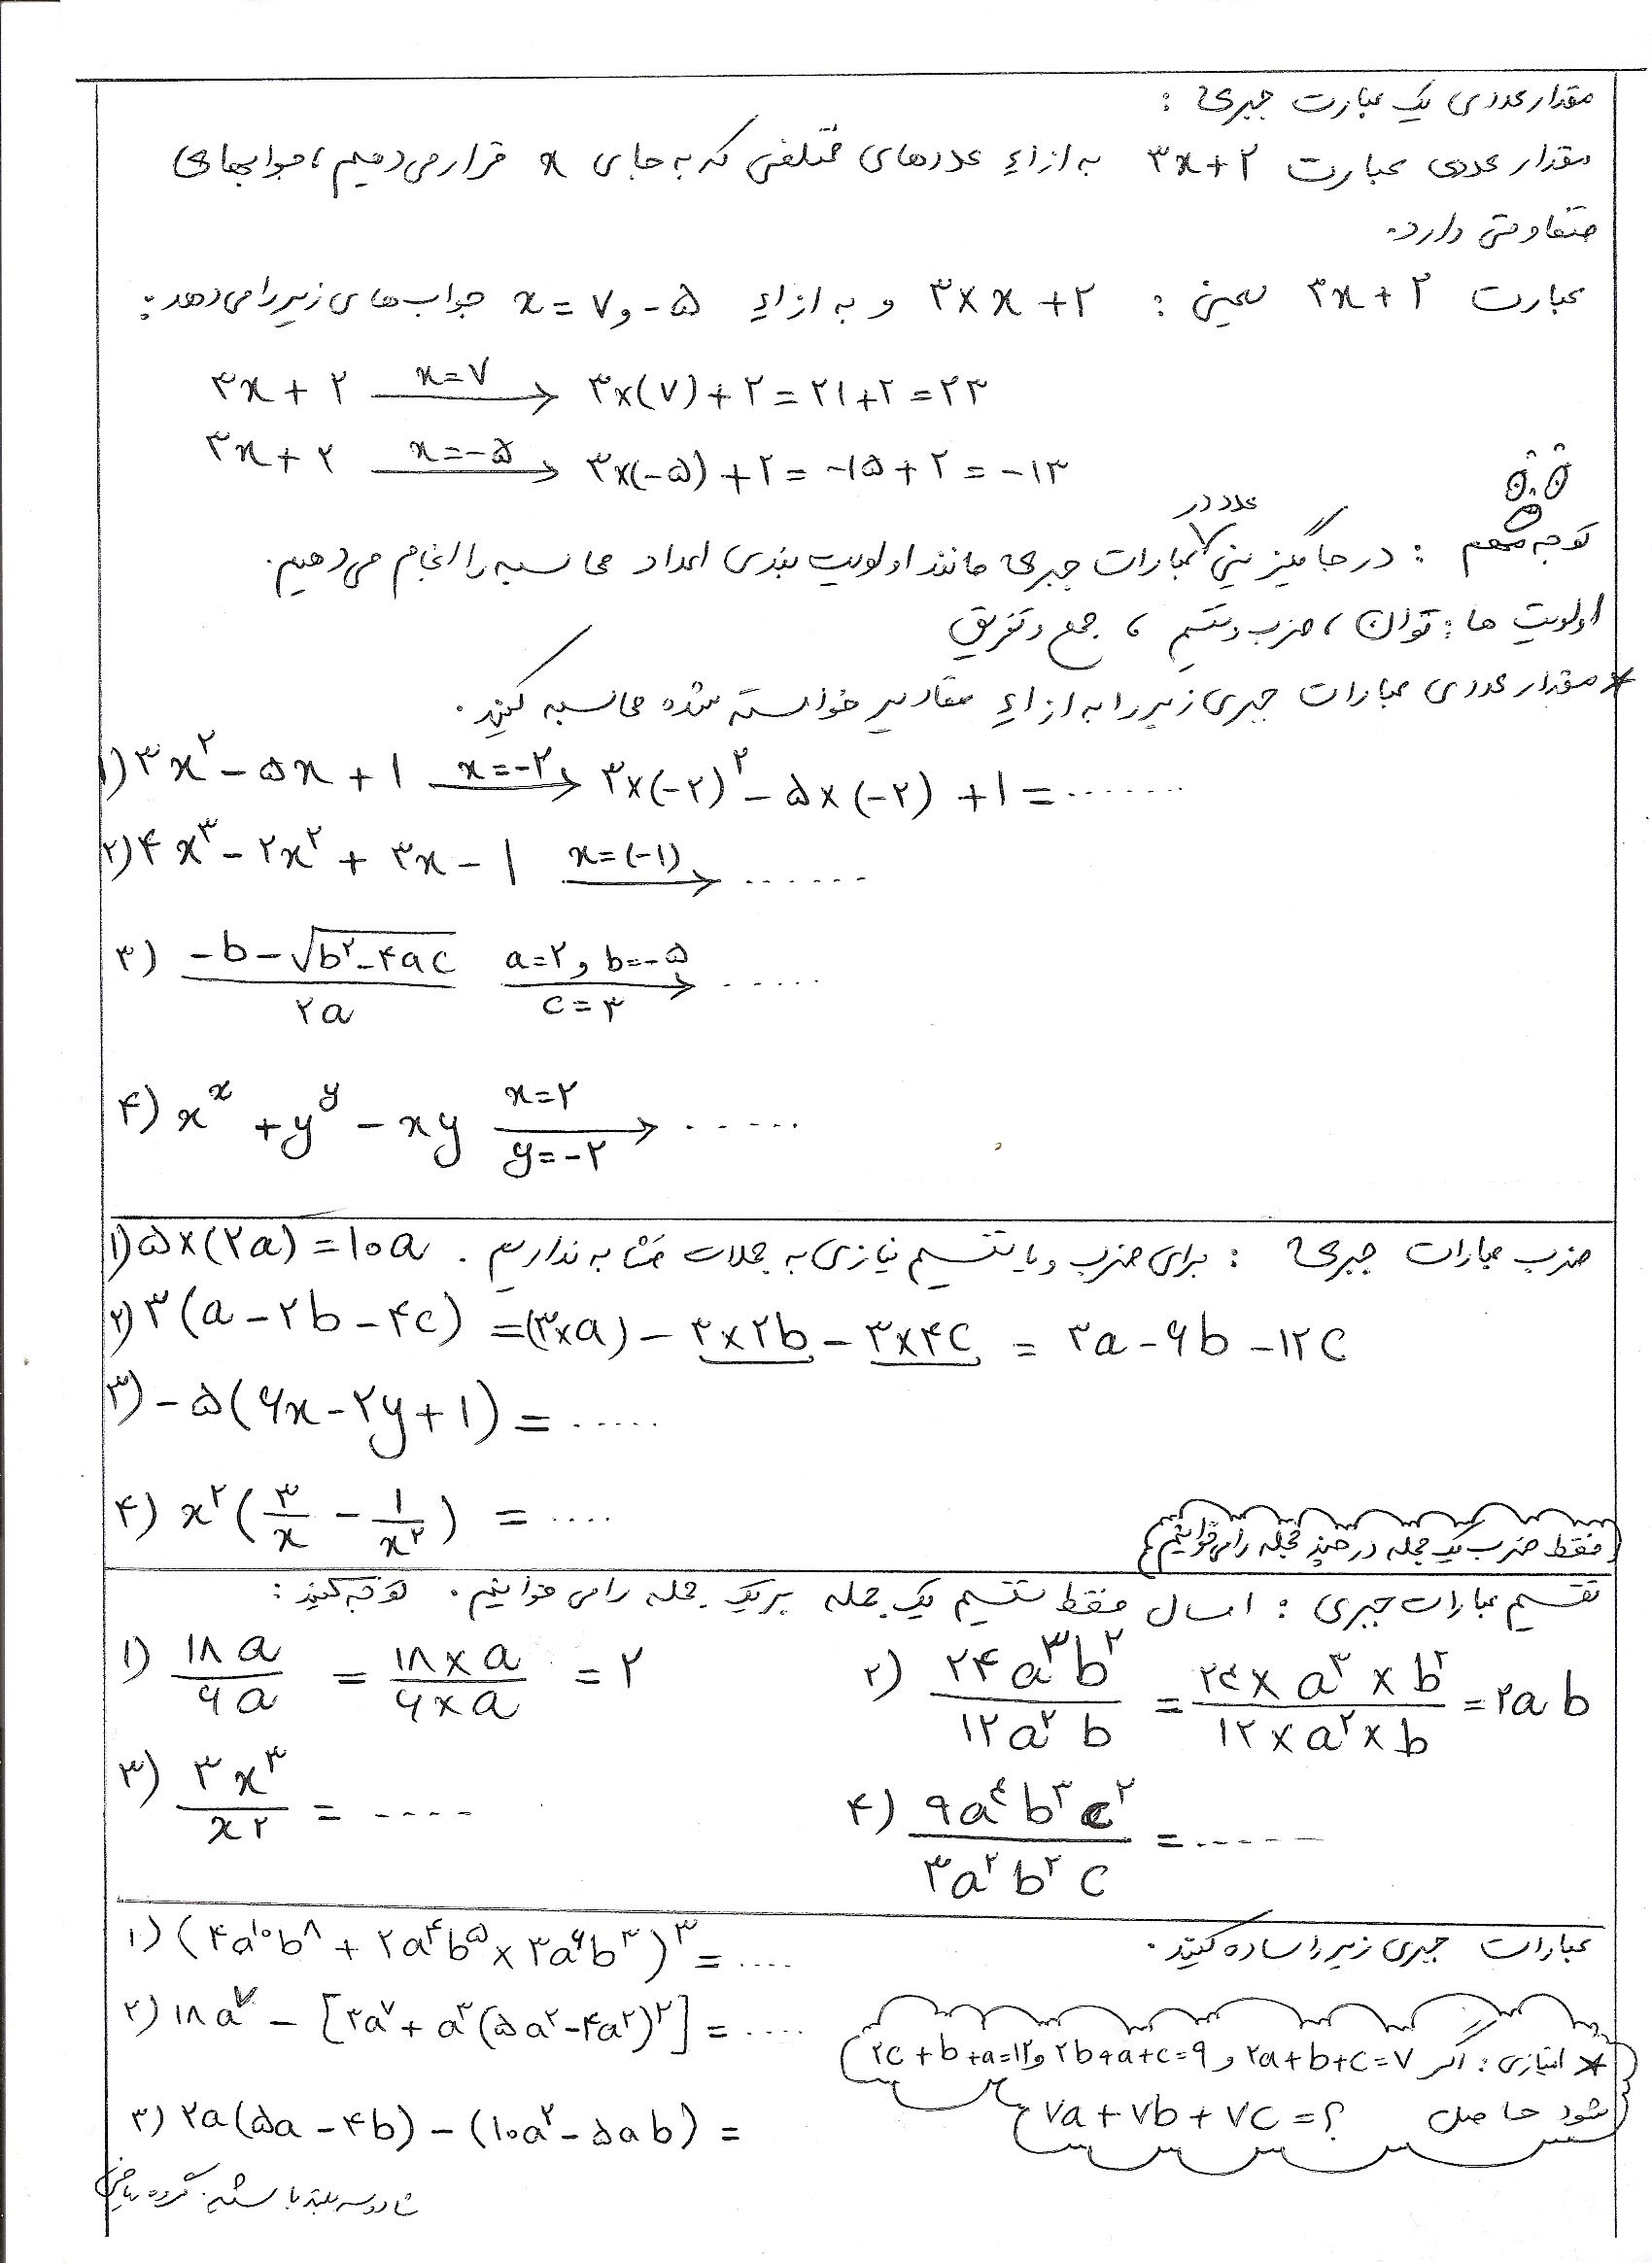 مقدار عددی یک عبارت جبری :
مقدار عددی عبارت ۳x+۲ به ازاءِ عددهای مختلفی که به جای x قرار می دهیم ، جوابهای
متفاوتی دارد.
عبارت ۳x+۲ یعنی : ۳×x+۲ و به ازاءِ x=۷ و -۵ جواب های زیر را می دهد :
۳x+۲ —x=۷→ ۳×(۷)+۲=۲۱+۲=۲۳
۳x+۲ —x=-۵→ ۳×(-۵)+۲=-۱۵+۲=-۱۳
عدد در
توجه مهم : در جاگیزینی عبارات جبری مانند اولویت بندی اعداد محاسبه را انجام می دهیم.
اولویت ها : توان ، ضرب و تقسیم ، جمع و تفریق
* مقدار عددی عبارات جبری زیر را به ازاءِ مقادیر خواسته شده محاسبه کنید.
۱) ۳x^۲-۵x+۱ —x=-۲→ ۳×(-۲)^۲-۵×(-۲)+۱=.......
۲) ۴x^۳-۲x^۲+۳x-۱ —x=(-۱)→ .......
۳) (-b-√(b^۲-۴ac))/(۲a) —a=۲ و b=-۵ c=۳→ ......
۴) x^x+y^y-xy —x=۲ y=-۲→ ......
ضرب عبارات جبری : برای ضرب و یا تقسیم نیازی به جملات متشابه نداریم . ۱) ۵×(۲a)=۱۰a
۲) ۳(a-۲b-۴c)=(۳×a)-۳×۲b-۳×۴c=۳a-۶b-۱۲c
۳) -۵(۶x-۲y+۱)=.....
۴) x^۲(۳/x-۱/x^۲)=....
فقط ضرب یک جمله در چند جمله را می خوانیم
تقسیم عبارات جبری : امسال فقط تقسیم یک جمله بر یک جمله را می خوانیم . توجه کنید :
۱) ۱۸a/۹a=۱۸×a/۹×a=۲
۲) ۲۴a^۳b^۲/۱۲a^۲b=۲۴×a^۳×b^۲/۱۲×a^۲×b=۲ab
۳) ۳x^۳/x^۲=....
۴) ۹a^۴b^۳c^۲/۳a^۲b^۲c=......
عبارات جبری زیر را ساده کنید.
۱) (۴a^۱۰b^۸+۲a^۴b^۵×۳a^۶b^۳)^۳=....
۲) ۱۸a^۷-[۳a^۷+a^۳(۵a^۲-۴a^۲)^۲]=....
* امتیازی : اگر ۲a+b+c=۷ و ۲b+a+c=۹ و ۲c+b+a=۱۲
شود حاصل ۷a+۷b+۷c=؟
۳) ۲a(۵a-۴b)-(۱۰a^۲-۵ab)=
شاد و سربلند باشید. گروه ریاضی